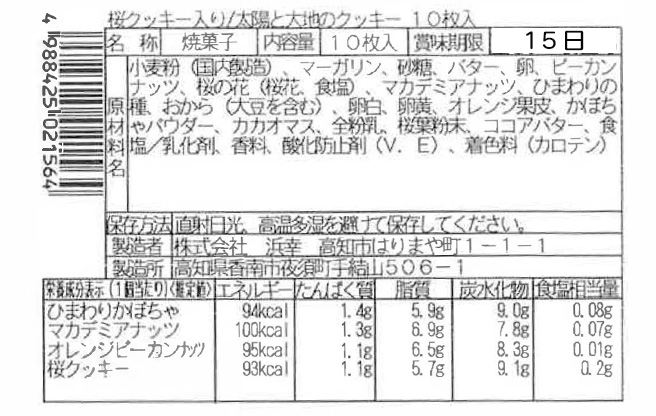 桜クッキー入り/太陽と大地のクッキー 10枚入
名 称 焼菓子 内容量 10枚入 賞味期限 15日
原材料名
小麦粉（国内製造）、マーガリン、砂糖、バター、卵、ピーカン
ナッツ、桜の花（桜花、食塩）、マカデミアナッツ、ひまわりの
種、おから（大豆を含む）、卵白、卵黄、オレンジ果皮、かぼち
ゃパウダー、カカオマス、全粉乳、桜葉粉末、ココアバター、食
塩／乳化剤、香料、酸化防止剤（V．E）、着色料（カロテン）
保存方法 直射日光、高温多湿を避けて保存してください。
製造者 株式会社 浜幸 高知市はりまや町1－1－1
製造所 高知県香南市夜須町手結山506－1
栄養成分表示（1個当たり）（推定値） エネルギー たんぱく質 脂質 炭水化物 食塩相当量
ひまわりかぼちゃ 94kcal 1.4g 5.9g 9.0g 0.08g
マカデミアナッツ 100kcal 1.3g 6.9g 7.8g 0.07g
オレンジピーカンナッツ 95kcal 1.1g 6.5g 8.3g 0.01g
桜クッキー 93kcal 1.1g 5.7g 9.1g 0.2g
4 988425 021564